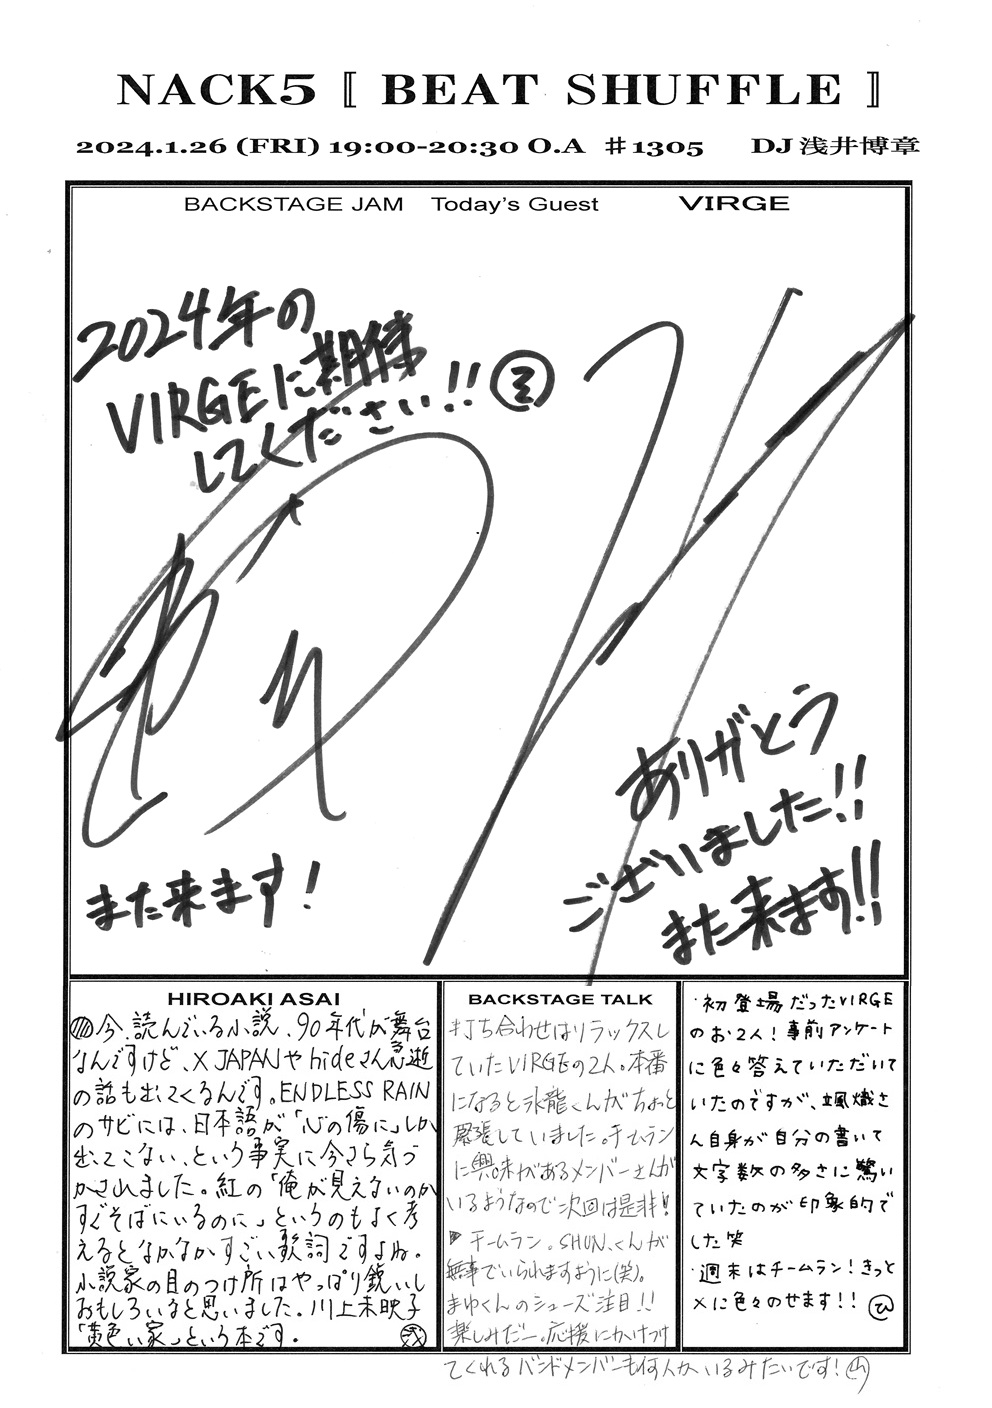 NACK5〚 BEAT SHUFFLE 〛
2024.1.26 (FRI) 19:00-20:30 O.A #1305 DJ 浅井博章
BACKSTAGE JAM Today's Guest VIRGE
2024年の
VIRGEに期待
してください!!
ありがとう
ございました!!
また来ます!!
また来ます!
HIROAKI ASAI
今、読んでいる小説、90年代が舞台
なんですけど、X JAPANやhideさん急逝
の話も出てくるんです。ENDLESS RAIN
のサビには、日本語が「心の傷に」しか
出てこない、という事実に今さら気づ
かされました。紅の「俺が見えないのか
すぐそばにいるのに」というのもよく考
えるとなかなかすごい歌詞ですよね。
小説家の目のつけ所はやっぱり鋭いし
おもしろいなと思いました。川上未映子
「黄色い家」という本です。
BACKSTAGE TALK
打ち合わせはリラックスし
ていたVIRGEの2人。本番
になると氷龍くんがちょっと
緊張していました。チームラン
に興味があるメンバーさんが
いるようなので次回は是非!
チームラン。SHUN.くんが
無事でいられますように(笑)。
まゆくんのシューズ注目!!
楽しみだー。応援にかけつけ
てくれるバンドメンバーも何人かいるみたいです!
・初登場だったVIRGE
のお2人!事前アンケート
に色々答えていただいて
いたのですが、颯熾さ
ん自身が自分の書いて
文字数の多さに驚い
ていたのが印象的で
した笑
・週末はチームラン!きっと
Xに色々のせます!! ひ